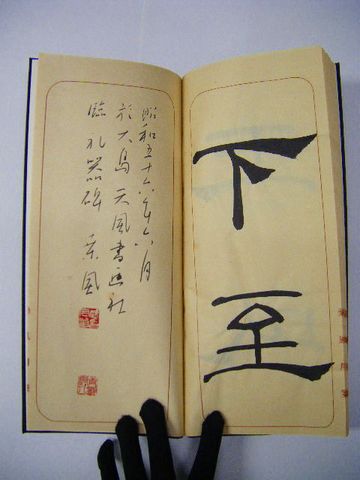 下至
昭和五十六年六月
於大島天風書画社
臨礼器碑 素風